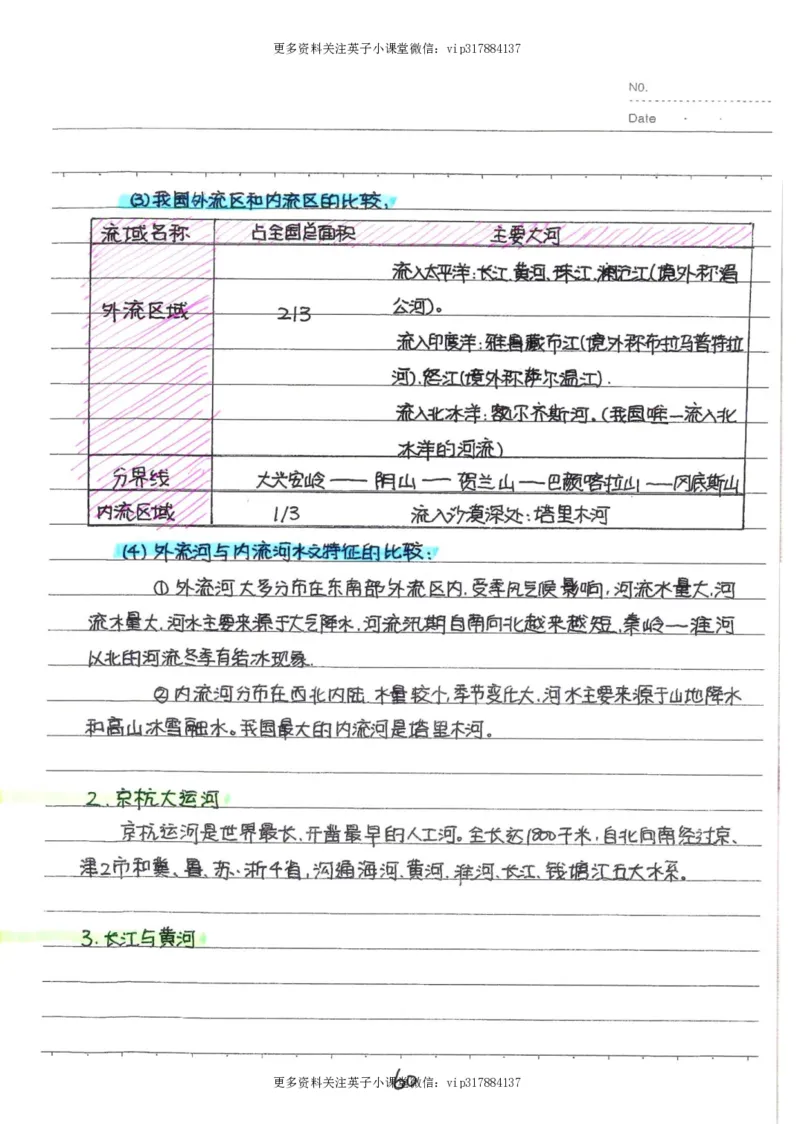 更多资料关注英子小课堂微信：vip317884137
NO.
Date
(3)我国外流区和内流区的比较：
流域名称 占全国总面积 主要大河
流入太平洋：长江、黄河、珠江、澜沧江(境外称湄
外流区域 2/3 公河)。
流入印度洋：雅鲁藏布江(境外称布拉马普特拉
河)、怒江(境外称萨尔温江).
流入北冰洋：额尔齐斯河。(我国唯一流入北
冰洋的河流)
分界线 大兴安岭——阴山——贺兰山—巴颜喀拉山——冈底斯山
内流区域 1/3 流入沙漠深处：塔里木河
(4)外流河与内流河水文特征的比较：
①外流河大多分布在东南部外流区内，受季风气候影响，河流水量大，河
流水量大，河水主要来源于大气降水，河流汛期自南向北越来越短，秦岭—淮河
以北的河流冬季有结冰现象.
②内流河分布在西北内陆，水量较小，季节变化大，河水主要来源于山地降水
和高山冰雪融水。我国最大的内流河是塔里木河。
2.京杭大运河
京杭运河是世界最长、开凿最早的人工河。全长达1800千米，自北向南经过京、
津2市和冀、鲁、苏、浙4省，沟通海河、黄河、淮河、长江、钱塘江五大水系。
3.长江与黄河
60
更多资料关注英子小课堂微信：vip317884137